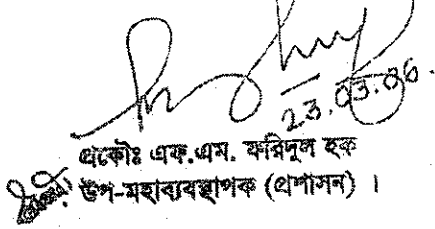 23.03.06.
প্রকৌঃ এফ.এম. ফরিদুল হক
উপ-মহাব্যবস্থাপক (প্রশাসন) ।